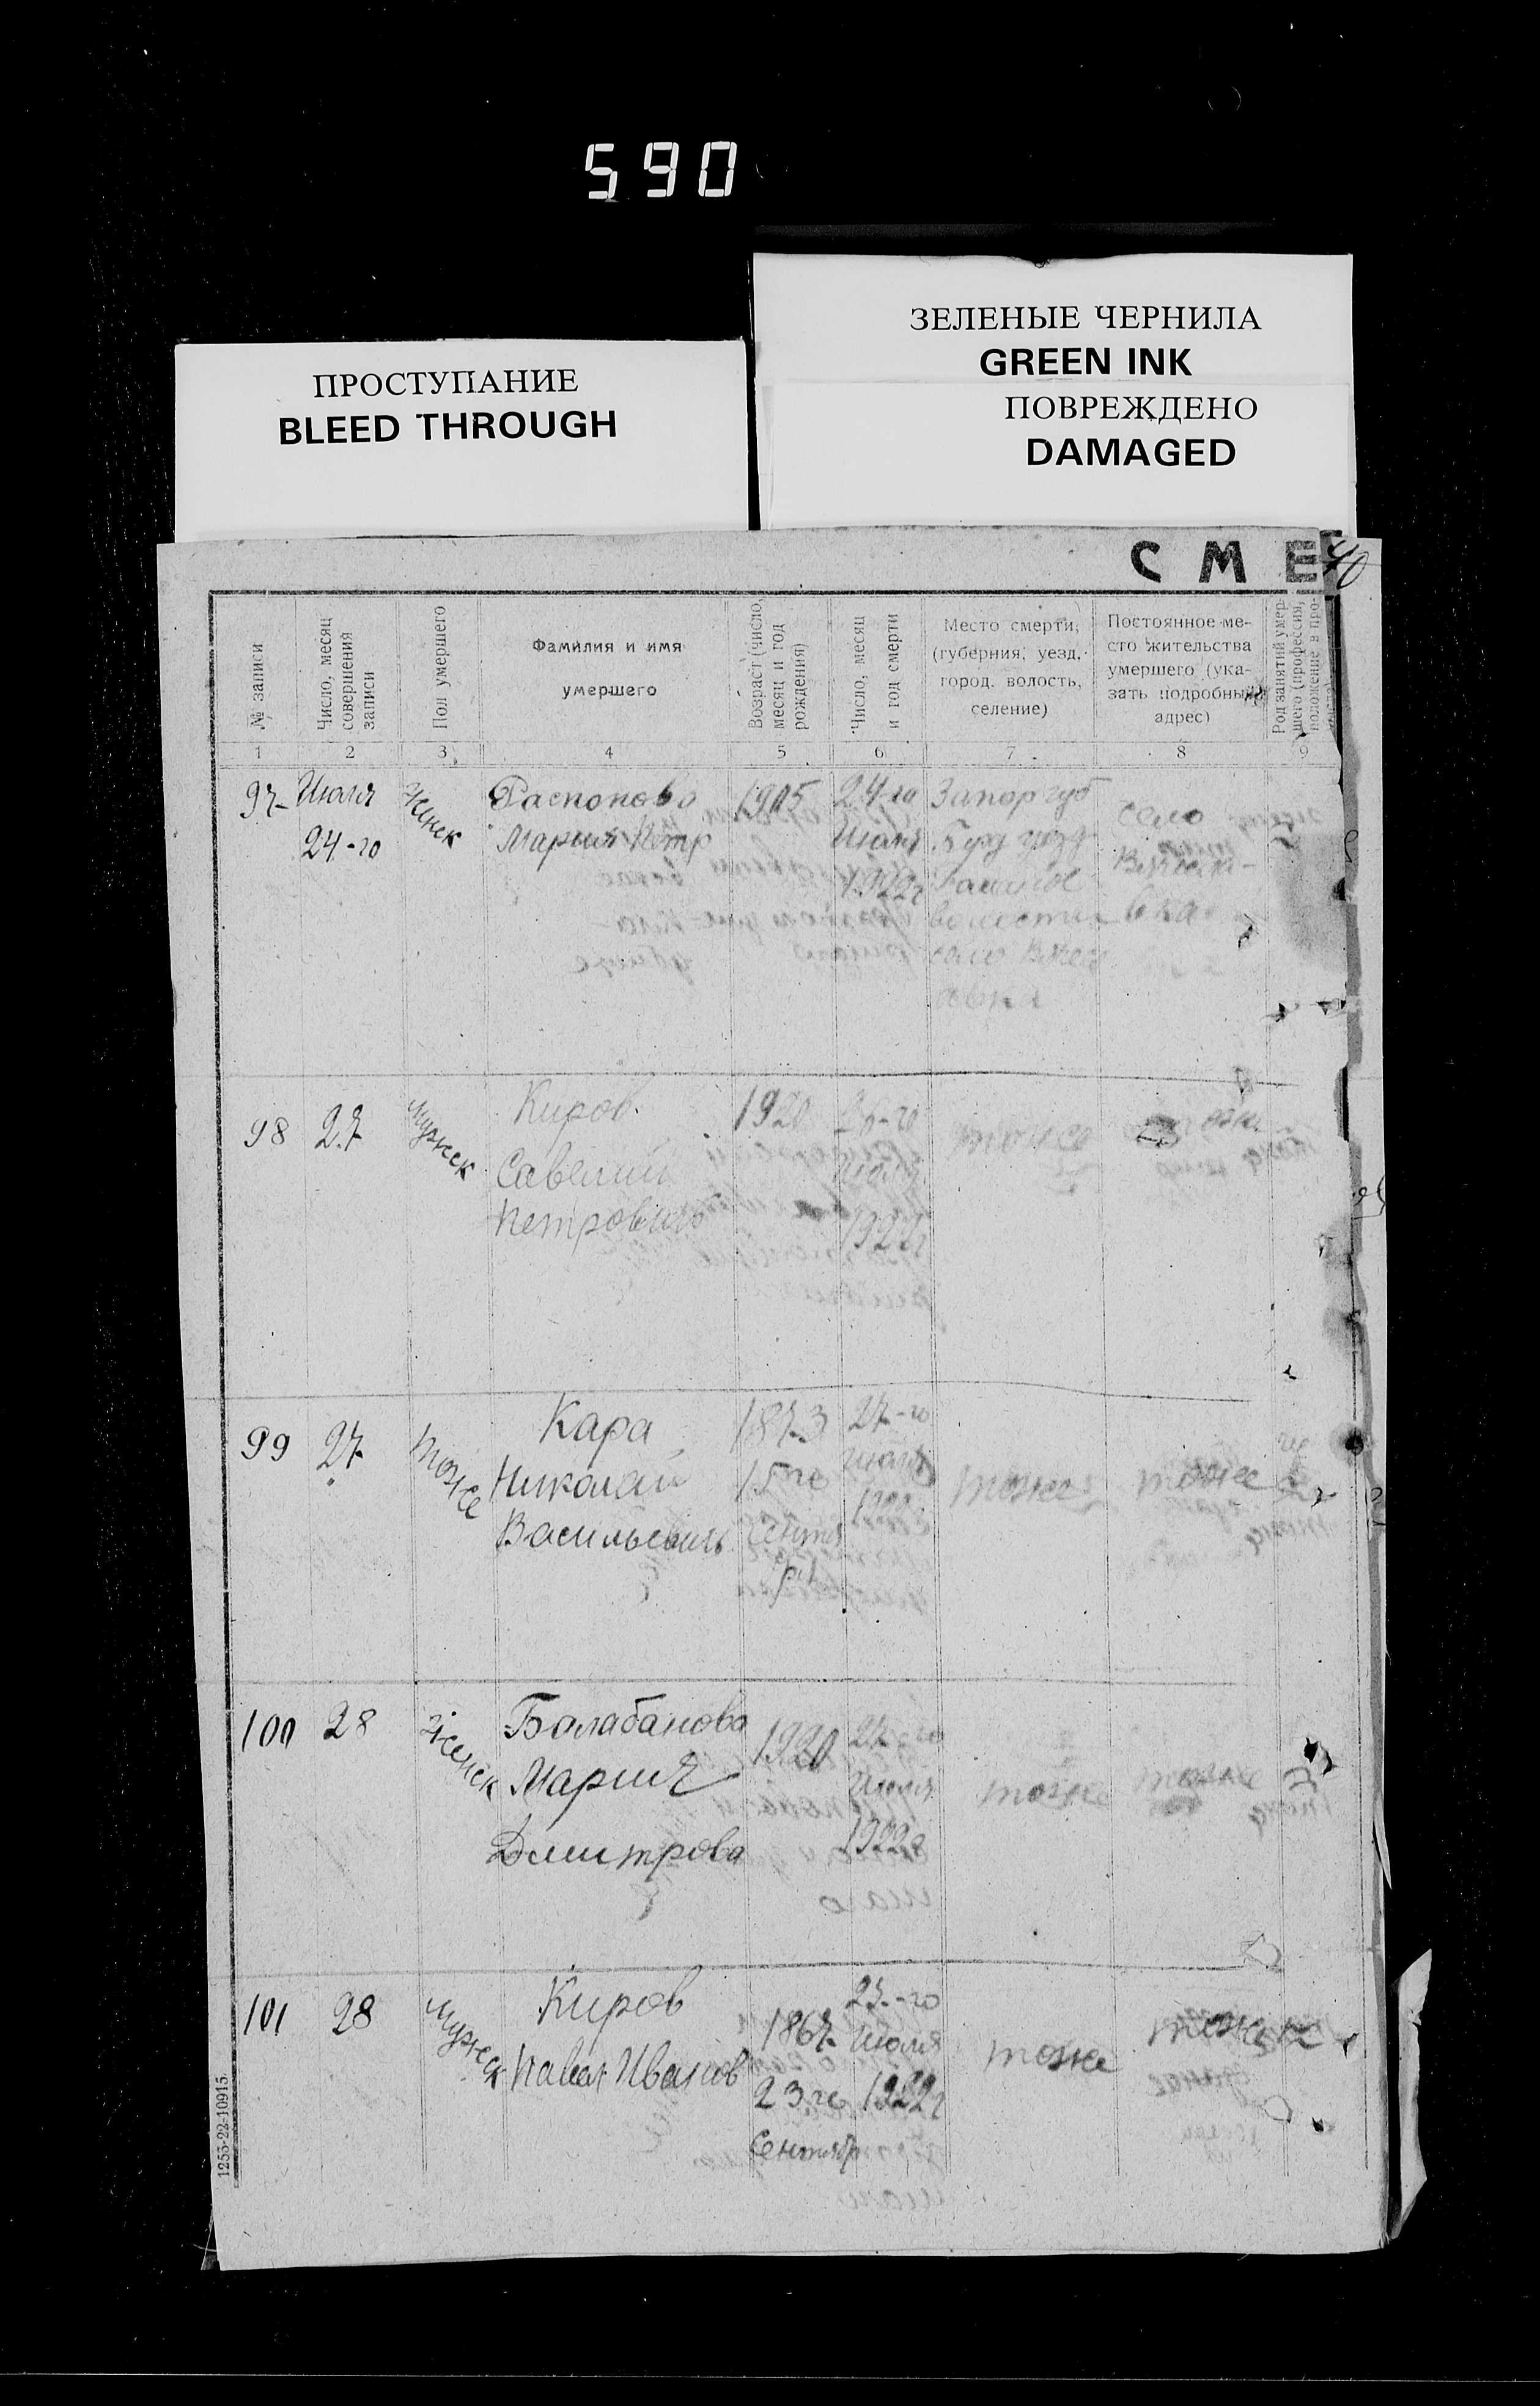 590
ЗЕЛЕНЫЕ ЧЕРНИЛА
GREEN INK
ПРОСТУПАНИЕ
BLEED THROUGH
ПОВРЕЖДЕНО
DAMAGED
СМЕ
40
№ записи
Число, месяц
совершения
записи
Пол умершего
Фамилия и имя
умершего
Возраст (число,
месяц и год
рождения)
Число, месяц
и год смерти
Место смерти,
(губерния, уезд,
город, волость,
селение)
Постоянное ме-
сто жительства
умершего (ука-
зать подробный
адрес)
Род занятий умер-
шего (профессия,
положение в про-
1 2 3 4 5 6 7 8 9
97
Июля
24-го
Женск
Распопова
Мария Петр
1905
24-го
Июля
1922г
Запор губ
село
98
27
Мужск
Киров
Савелий
Петрович
1920
26-го
Июля
1922г
тоже
99
27
тоже
Кара
Николай
Васильевич
1873
15го
Сентя
бр
27-го
июля
1922
тоже
тоже
100
28
Женск
Болабанова
Мария
Дмитрова
1920
27-го
Июля
1922г
тоже
тоже
101
28
Мужск
Киров
Павел Иванов
1867
23го
Сентябр
27-го
июля
1922г
тоже
тоже
1253-22-10915.